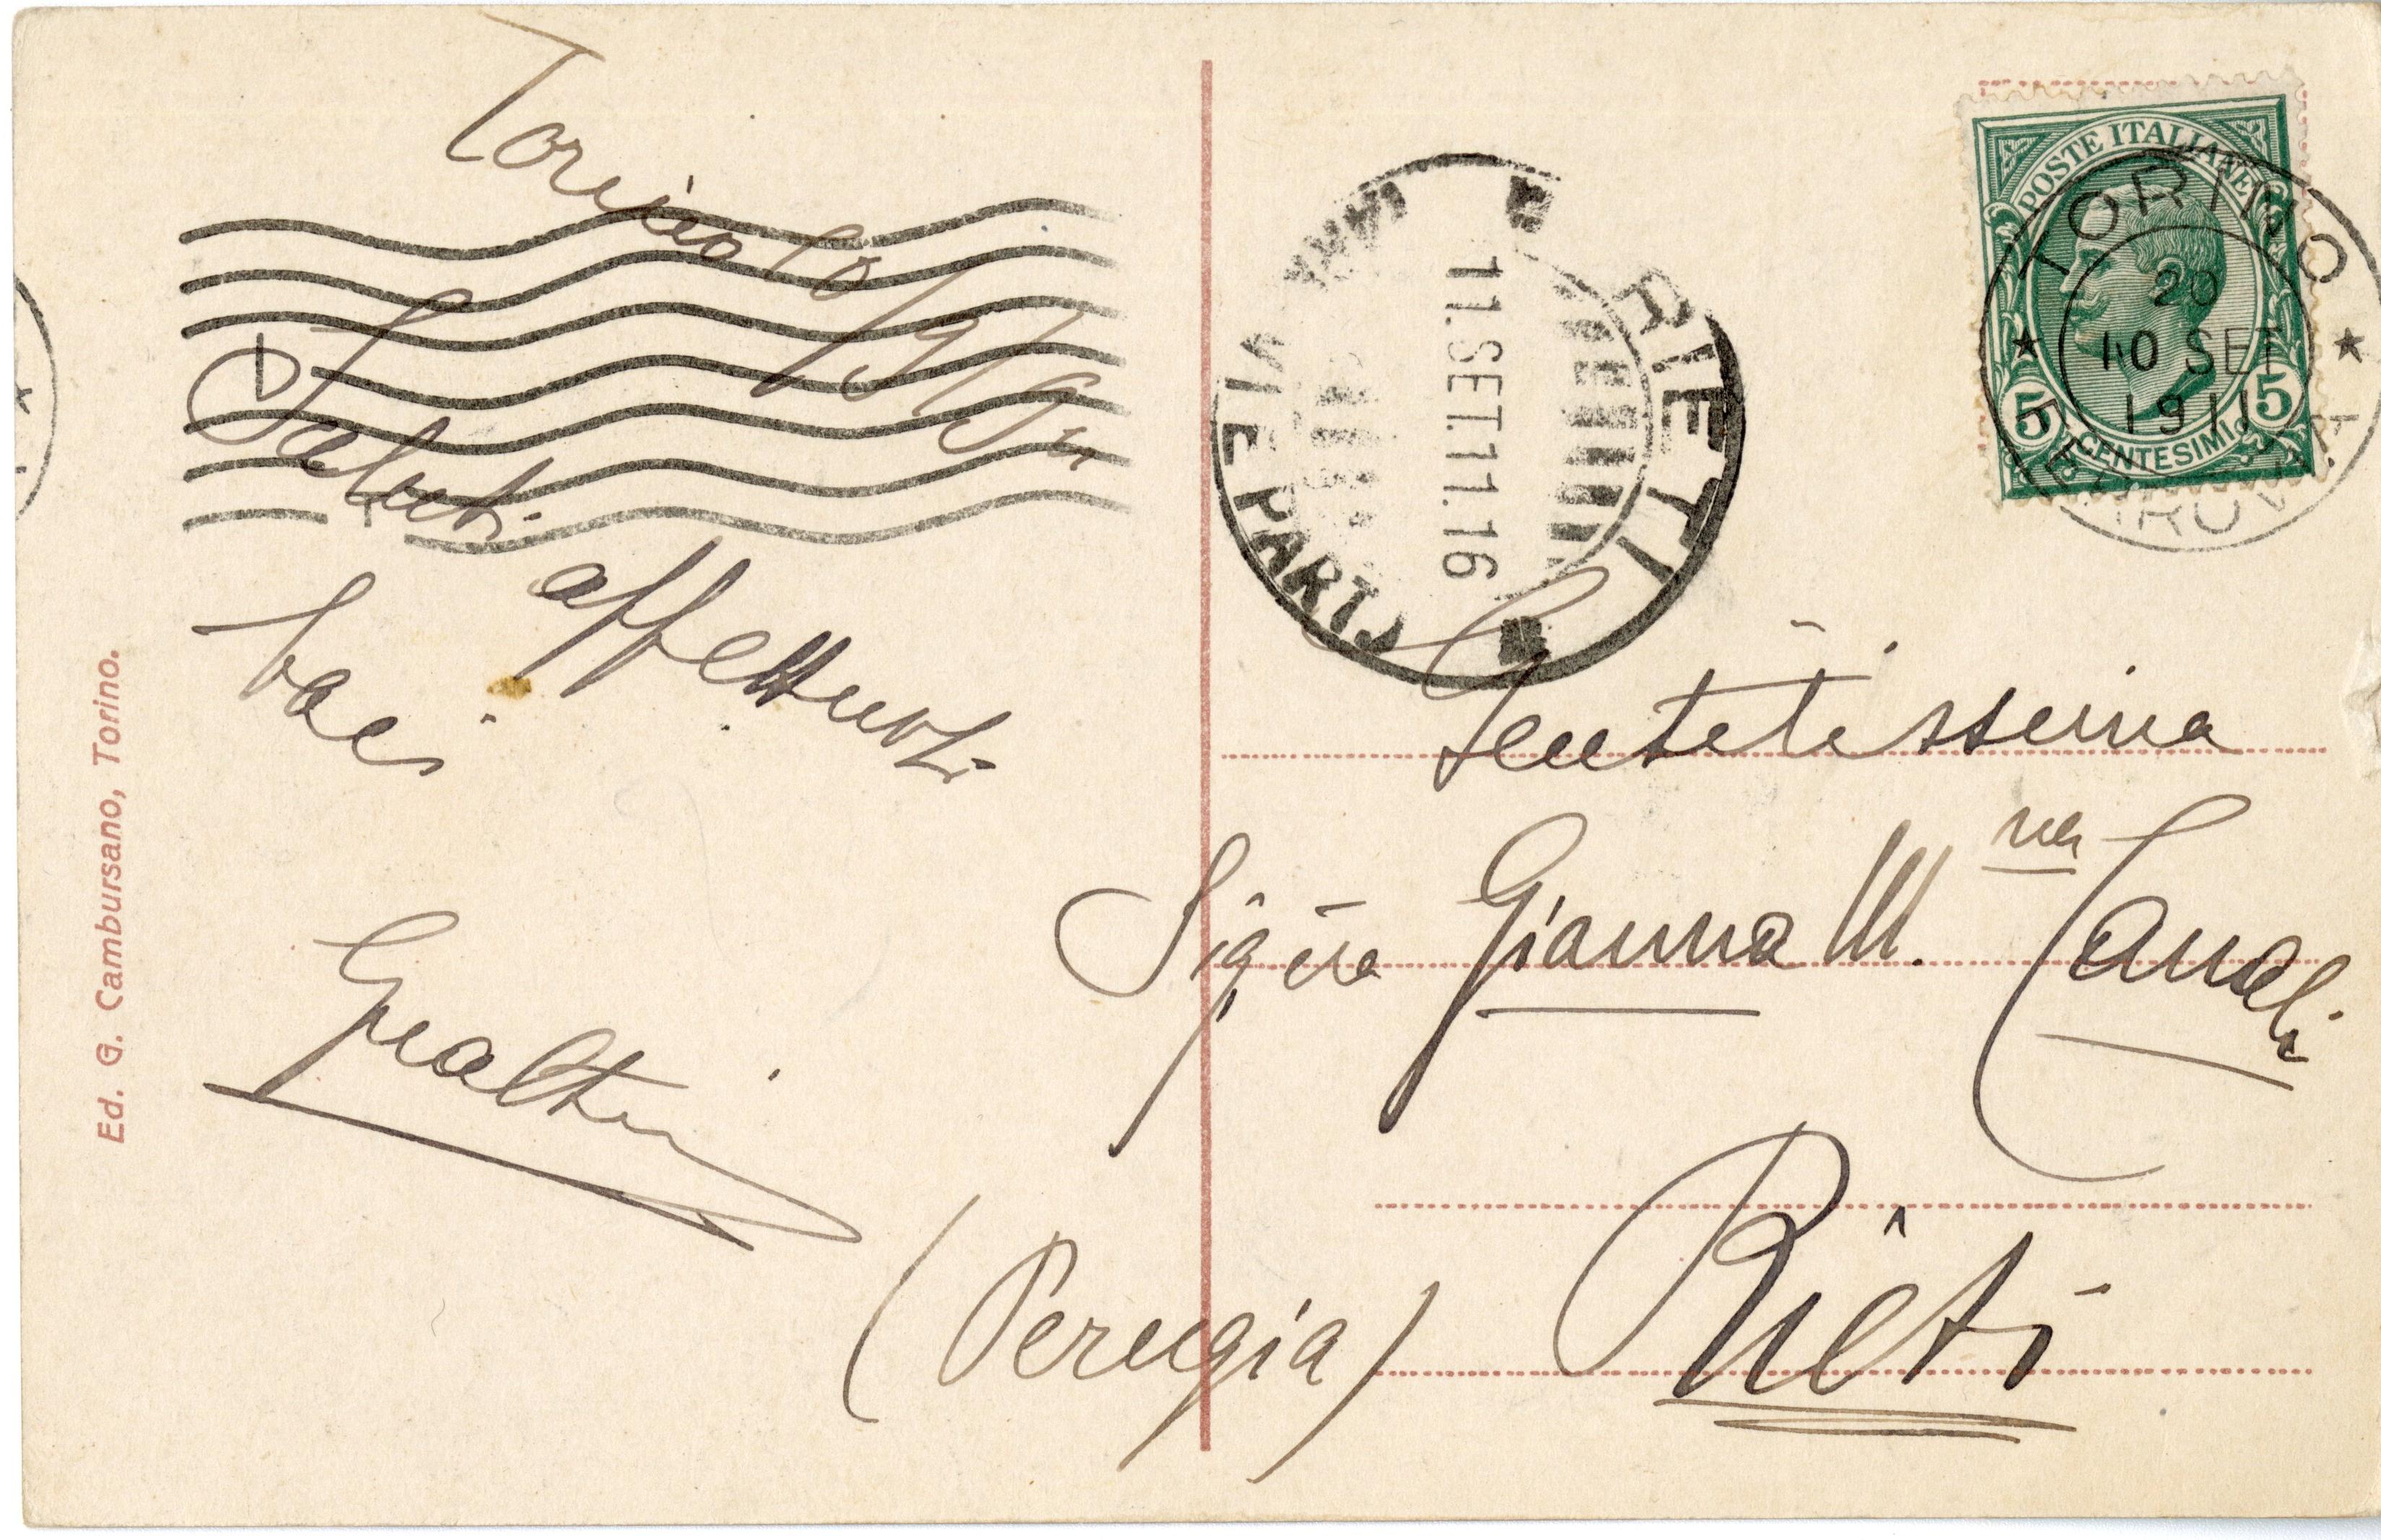 Torino 10/9/911
Saluti
affettuosi
baci
Gualtier
Ed. G. Cambursano, Torino.
POSTE ITALIANE
5 CENTESIMI 5
TORINO
20
10 SET
1911
FERROVIA
RIETI
11.SET.11.16
Gentilissima
Sig.na Gianna M.na Canali
Rieti
(Perugia)